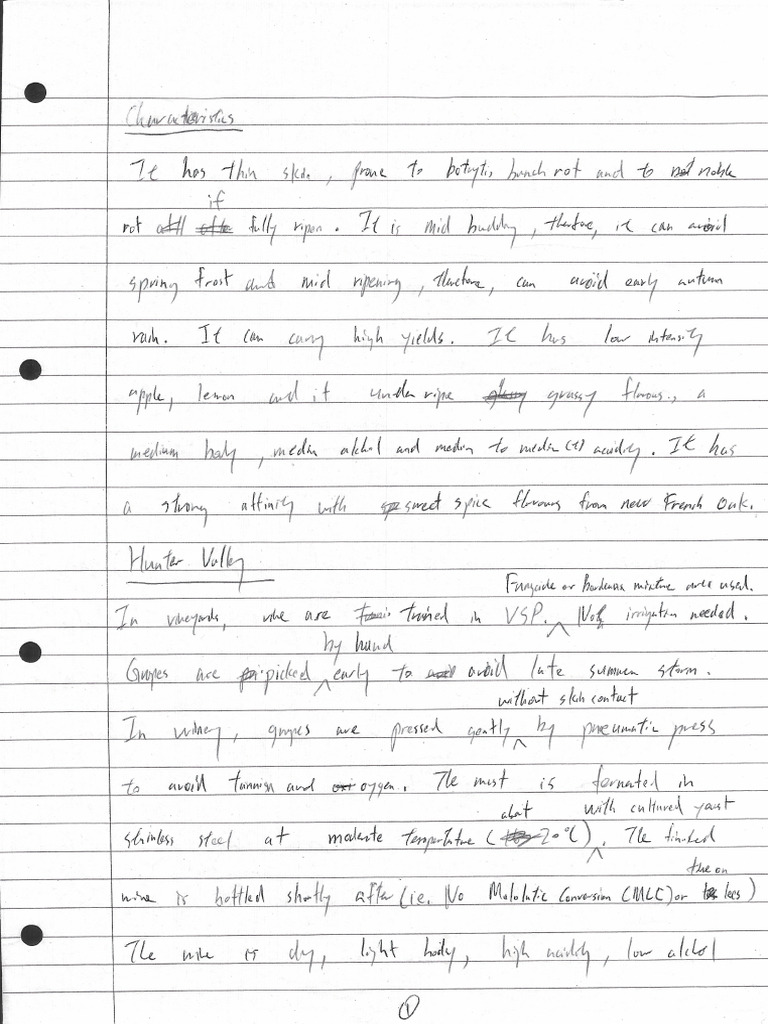 Characteristics
It has thin skin, prone to botrytis bunch rot and to noble
if
rot fully ripen. It is mid budding, therefore, it can avoid
spring frost and mid ripening, therefore, can avoid early autumn
rain. It can carry high yields. It has low intensity
apple, lemon and if under ripe grassy flavours, a
medium body, medium alcohol and medium to medium (+) acidity. It has
a strong affinity with sweet spice flavours from new French Oak.
Hunter Valley
Fungicide or Bordeaux mixture are used.
In vineyards, vine are trained in VSP. No irrigation needed.
by hand
Grapes are picked early to avoid late summer storm.
without skin contact
In winery, grapes are pressed gently by pneumatic press
to avoid tannins and oxygen. The must is fermented in
about with cultured yeast
stainless steel at moderate temperature (20°C). The finished
time on
wine is bottled shortly after (ie. No Malolactic Conversion (MLC) or lees)
The wine is dry, light body, high acidity, low alcohol
1